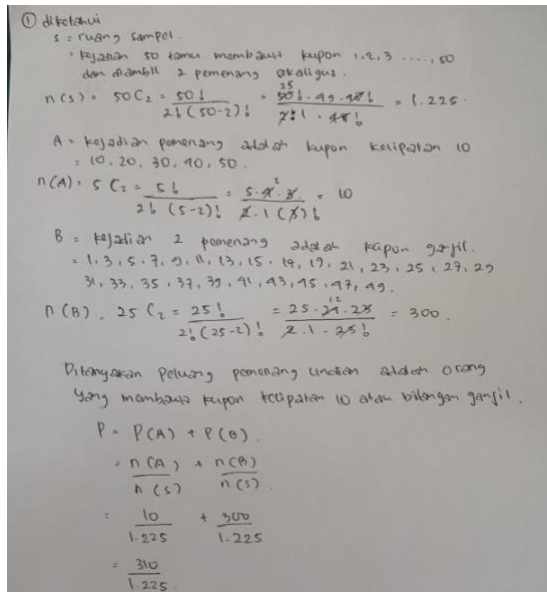 ① diketahui
S = ruang sampel.
= kejadian 50 tamu membawa kupon 1, 2, 3 ....., 50
dan diambil 2 pemenang sekaligus.
n(S) = 50C2 = 50! / 2!(50-2)! = 50! . 49 . 48! / 2! 1 . 48! = 1.225.
A = kejadian pemenang adalah kupon kelipatan 10
= 10, 20, 30, 40, 50.
n(A) = 5C2 = 5! / 2!(5-2)! = 5.4.3. / 2.1(3)! = 10
B = kejadian 2 pemenang adalah kupon ganjil.
= 1, 3, 5, 7, 9, 11, 13, 15, 17, 19, 21, 23, 25, 27, 29
31, 33, 35, 37, 39, 41, 43, 45, 47, 49.
n(B) . 25C2 = 25! / 2!(25-2)! = 25.24.23 / 2.1-23! = 300.
Ditanyakan peluang pemenang undian adalah orang
yang membawa kupon kelipatan 10 atau bilangan ganjil.
P = P(A) + P(B).
= n(A) / n(S) + n(B) / n(S).
= 10 / 1.225 + 300 / 1.225
= 310 / 1.225.